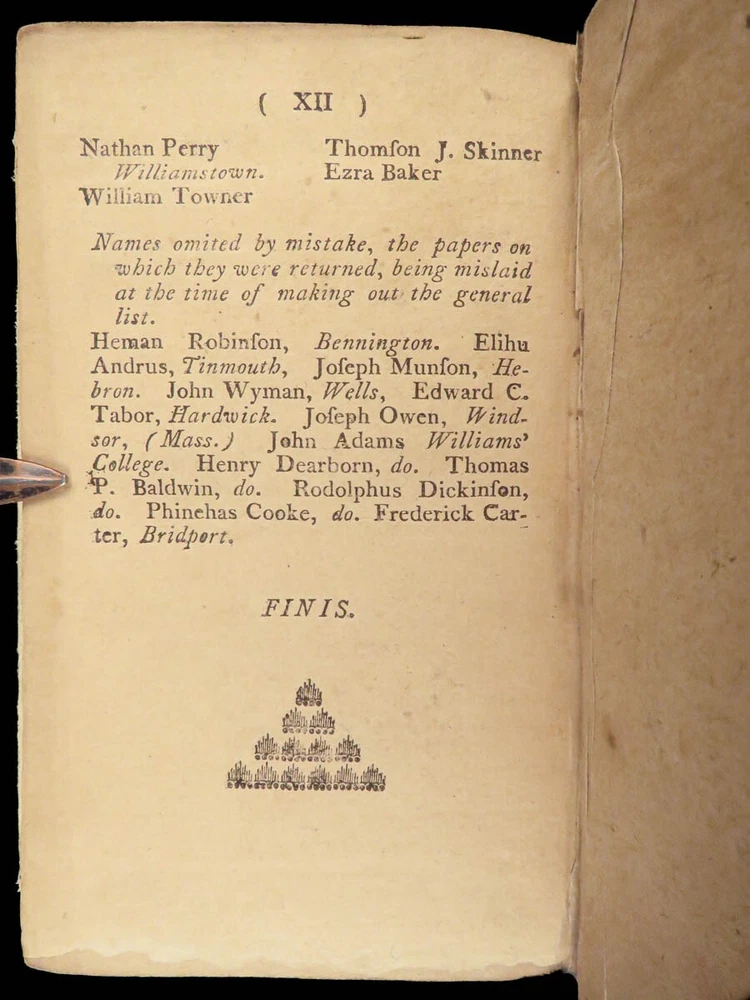 ( XII )
Nathan Perry
Williamstown.
William Towner
Thomſon J. Skinner
Ezra Baker
Names omited by mistake, the papers on
which they were returned, being mislaid
at the time of making out the general
list.
Heman Robinſon, Bennington. Elihu
Andrus, Tinmouth, Joſeph Munſon, He-
bron. John Wyman, Wells, Edward C.
Tabor, Hardwick. Joſeph Owen, Wind-
sor, (Mass.) John Adams Williams'
College. Henry Dearborn, do. Thomas
P. Baldwin, do. Rodolphus Dickinſon,
do. Phinehas Cooke, do. Frederick Car-
ter, Bridport.
FINIS.